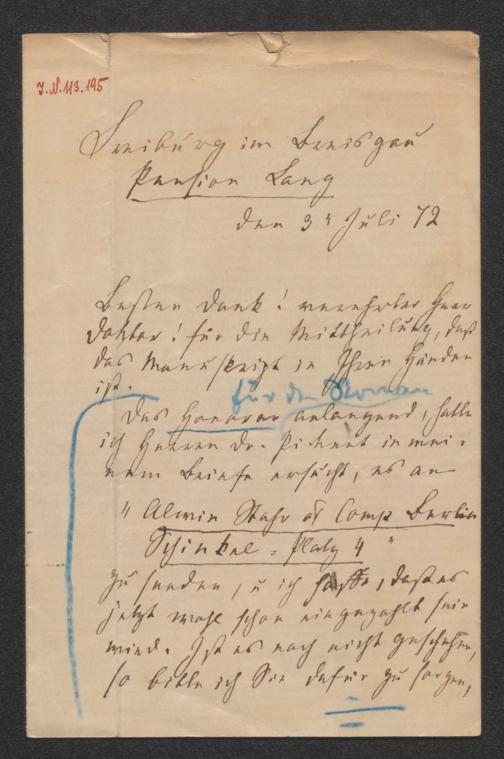 J.N. 113.195
Freiburg im Breisgau
Pension Lang
den 3t Juli 72
Besten Dank! verehrter Herr
Doktor! für die Mittheilung, daß
das Manuskript in Ihren Händen
ist.
für den Roman
Das Honorar anlangend, hatte
ich Herrn Dr. in mei-
nem Briefe ersucht, es an
"Alwin Stahr & Comp Berlin
Schinkel-Platz 4"
zu senden, u ich hoffe, daß es
jetzt wohl schon eingezahlt sein
wird. Ist es noch nicht geschehen,
so bitte ich Sie dafür zu sorgen,